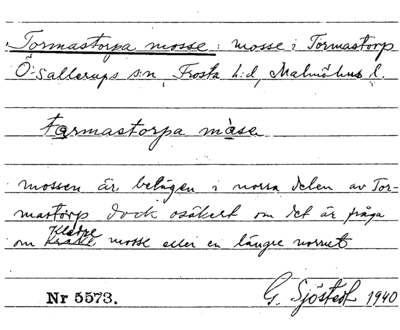 Tormastorpa mosse: mosse i Tormastorp
Ö. Sallerups sn, Frosta h:d, Malmöhus l.
Tormastorpa måse
mossen är belägen i norra delen av Tor-
mastorp dock osäkert om det är fråga
om mosse eller en längre norrut
Nr 5573. G. Sjöstedt 1940